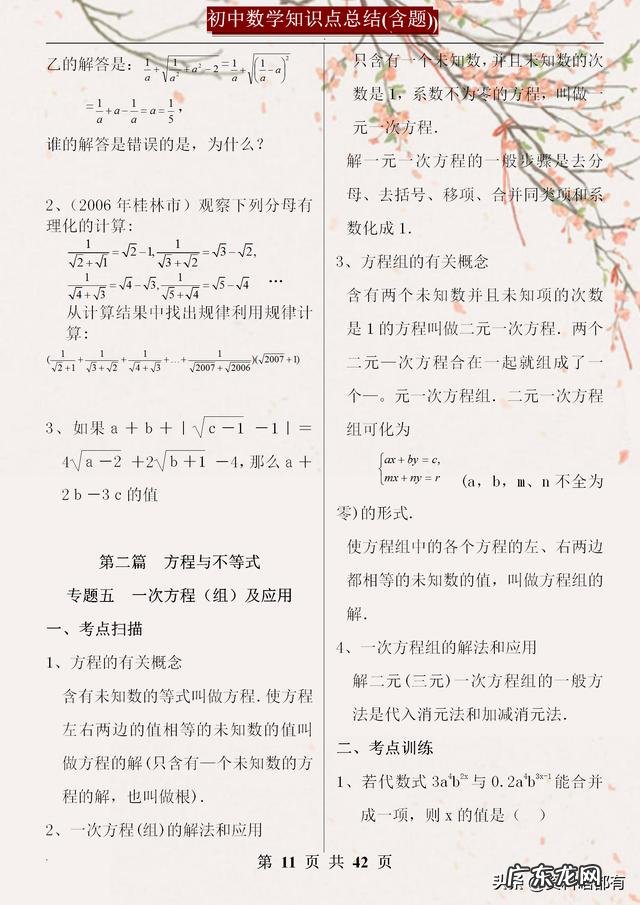 初中数学知识点总结(含题)
乙的解答是：1/a+√(1/a²+a²-2)=1/a+√((1/a-a)²)
=1/a+a-1/a=a=1/5，
谁的解答是错误的是，为什么？
2、(2006年桂林市）观察下列分母有
理化的计算:
1/(√2+√1)=√2-1,1/(√3+√2)=√3-√2,
1/(√4+√3)=√4-√3,1/(√5+√4)=√5-√4 …
从计算结果中找出规律利用规律计
算:
(1/(√2+1)+1/(√3+√2)+1/(√4+√3)+…+1/(√2007+√2006))(√2007+1)
3、如果a＋b＋|√(c-1) -1|＝
4√(a-2) +2√(b+1) -4,那么a＋
2b－3c的值
第二篇 方程与不等式
专题五 一次方程（组）及应用
一、考点扫描
1、方程的有关概念
含有未知数的等式叫做方程.使方程
左右两边的值相等的未知数的值叫
做方程的解(只含有—个未知数的方
程的解，也叫做根).
2、一次方程(组)的解法和应用
只含有一个未知数，并且未知数的次
数是1，系数不为零的方程，叫做一
元一次方程.
解一元一次方程的一般步骤是去分
母、去括号、移项、合并同类项和系
数化成1.
3、方程组的有关概念
含有两个未知数并且未知项的次数
是1的方程叫做二元一次方程．两个
二元—次方程合在一起就组成了一
个—。元一次方程组．二元一次方程
组可化为
{ax+by=c,
mx+ny=r (a，b，m、n不全为
零)的形式.
使方程组中的各个方程的左、右两边
都相等的未知数的值，叫做方程组的
解.
4、一次方程组的解法和应用
解二元(三元)一次方程组的一般方
法是代入消元法和加减消元法.
二、考点训练
1、若代数式3a⁴b²ˣ与0.2a⁴b³ˣ⁻¹能合并
成一项，则x的值是（ ）
第 11 页 共 42 页
广东龙网
头条
都有